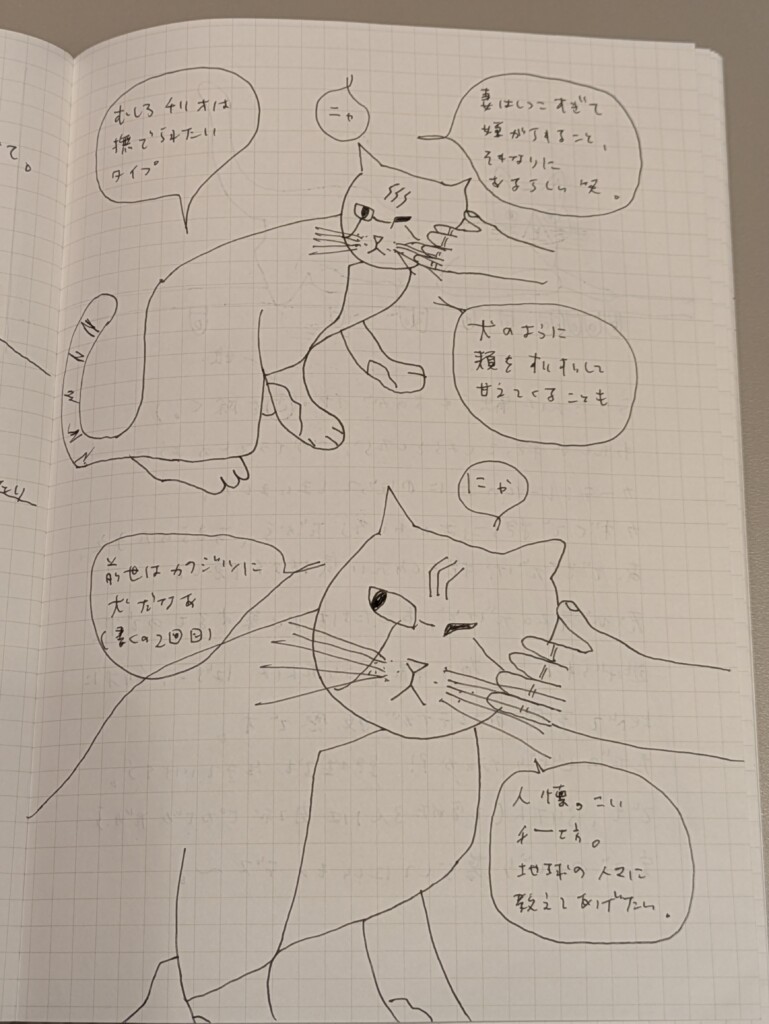 むしろ チリオは
撫でられたい
タイプ
ニャ
妻はしつこすぎて
嫌がられること、
それなりに
あるらしい 笑。
犬のように
頬を スリスリして
甘えてくることも
にゃ
前世は カクジツに
犬だなぁ
(書くの2回目)
人懐っこい
チーて方。
地球の人々に
教えてあげたい。
て。